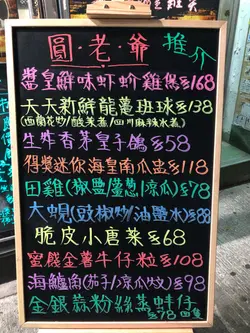 圓·老·爺 推介
醬皇鮮味蚧雞煲$168
天天新鮮龍躉班球$138
(西蘭花炒/酸菜煮/四川麻辣水煮)
生炸香茅皇子鴿$58
得獎迷你海皇南瓜盅$118
田雞(椒鹽/薑葱/涼瓜)$78
大蜆(豉椒炒/油鹽水)$88
脆皮小唐菜$68
蜜餞金薯牛仔粒$108
海鱸南(茄子/涼瓜炆)$98
金銀蒜粉絲蒸蟶仔
$98 四隻